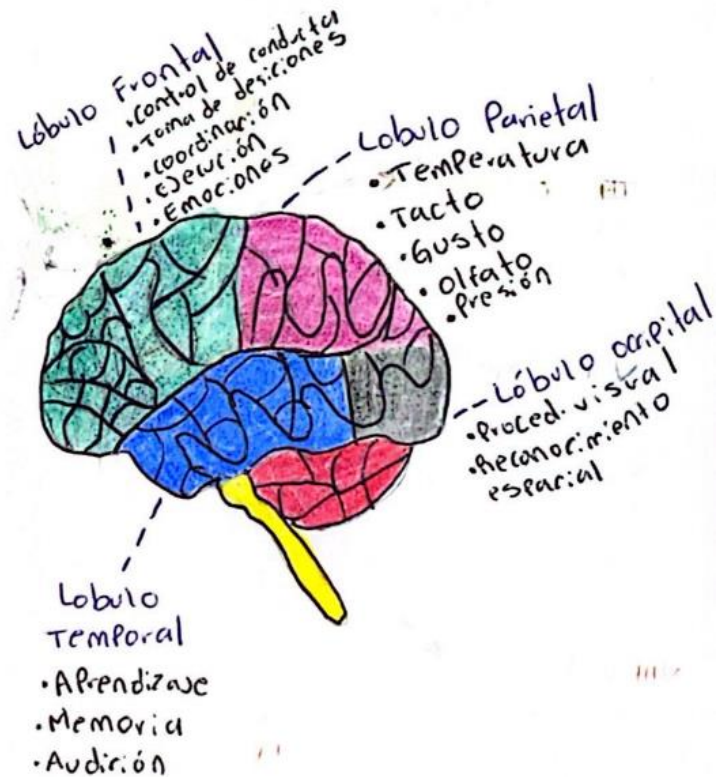 Lóbulo Frontal
• Control de conducta
• Toma de desiciones
• Coordinación
• Ejecución
• Emociones
Lobulo Parietal
• Temperatura
• Tacto
• Gusto
• Olfato
• Presión
Lóbulo occipital
• Proced. visual
• Reconocimiento
espacial
Lobulo
Temporal
• Aprendizaje
• Memoria
• Audición